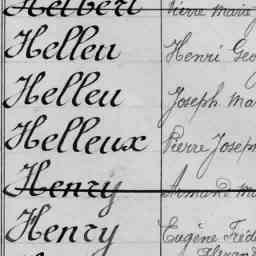 Helbert Pierre Marie
Helleu Henri Geo
Helleu Joseph Ma
Helleux Pierre Joseph
Henry Armand Ma
Henry Eugène Fréde
Alexand